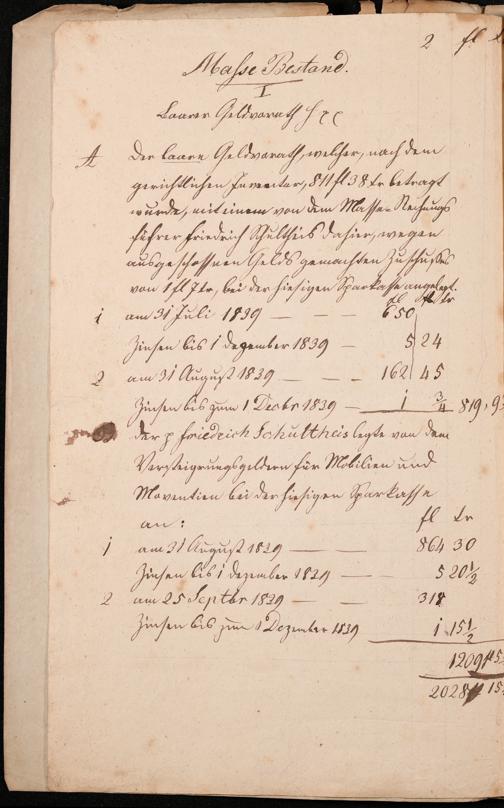 2 fl
Masse Bestand.
I
Baarer Geldvorath
A Der baare Geldvorath, welcher, nach dem
gerichtlichen Inventar, 811 fl 38 kr betragt
wurde, mit einem von dem Masse-Rechnungs
führer Friedrich Schultheis dahier, wegen
ausgeschossnen Gelds gemachten Zuschusses
von 1 fl 7 kr, bei der hiesigen Sparkasse angelegt.
fl kr
1 am 31 Juli 1839 — — 650
Zinsen bis 1 Dezember 1839 — 5 24
2 am 31 August 1839 — — 162 45
Zinsen bis zum 1 Decbr 1839 — 1 3/4 819, 9
der p Friedrich Schultheis legte von dem
Versteigerungsgeldern für Mobilien und
Moventien bei der hiesigen Sparkasse
an: fl kr
1 am 31 August 1839 — — 864 30
Zinsen bis 1 Dezember 1839 — — 5 20 1/2
2 am 25 Septbr 1839 — — 318
Zinsen bis zum 1 Dezember 1839 1 15 1/2
1209
2028 15